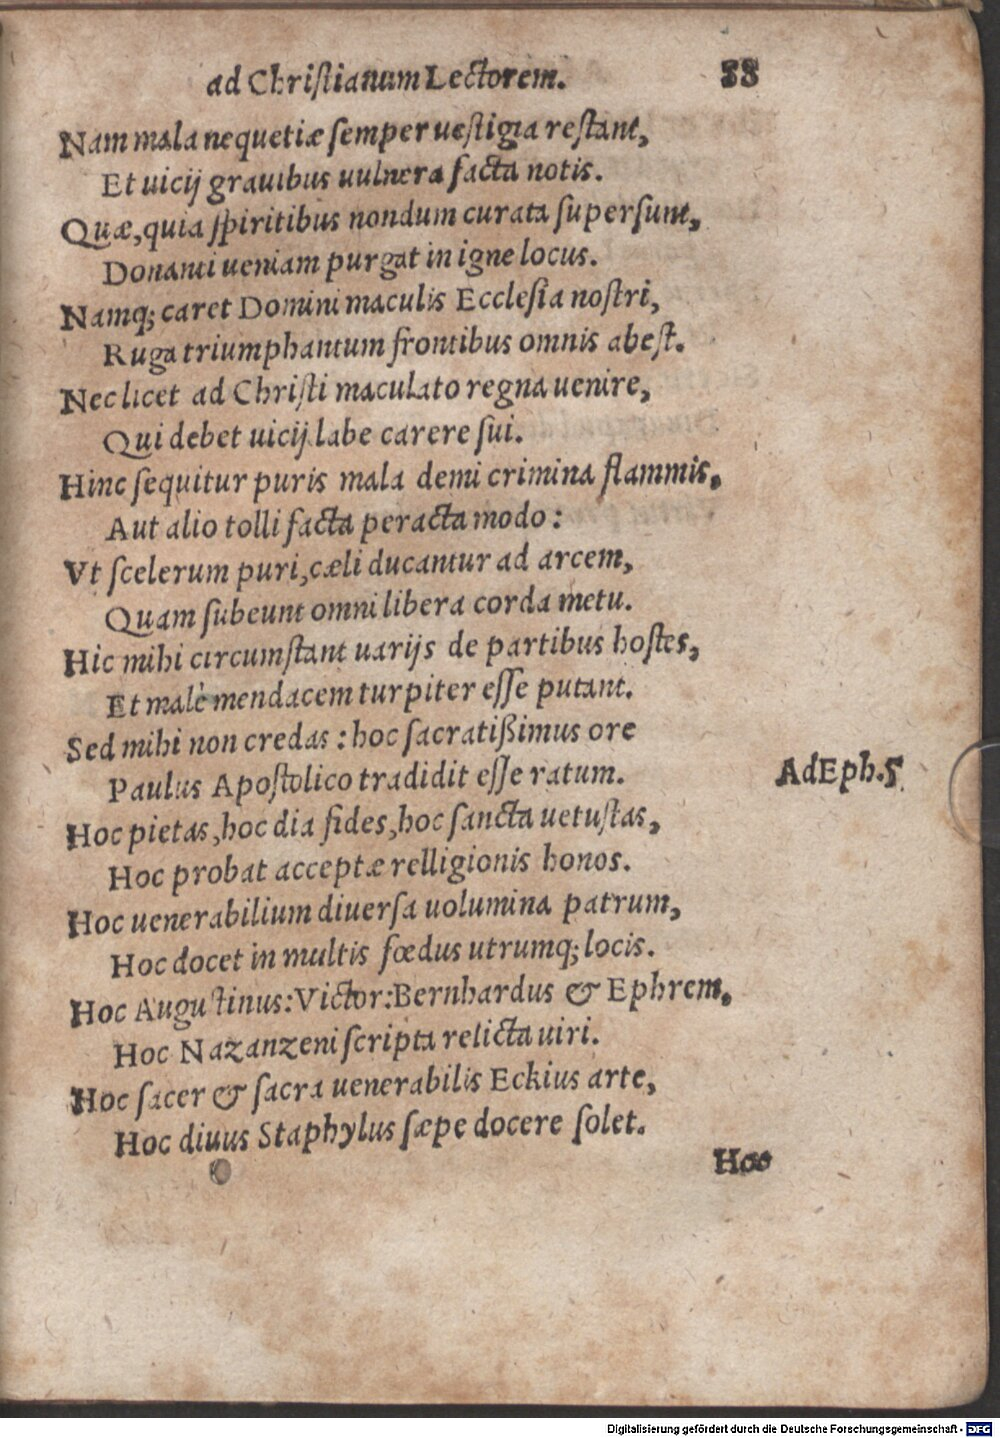 ad Chriſtianum Lectorem. 88
Nam mala nequetiæ ſemper ueſtigia reſtant,
Et uicij grauibus uulnera facta notis.
Quæ, quia ſpiritibus nondum curata ſuperſunt,
Donanti ueniam purgat in igne locus.
Namq; caret Domini maculis Eccleſia noſtri,
Ruga triumphantum frontibus omnis abeſt.
Nec licet ad Chriſti maculato regna uenire,
Qui debet uicij labe carere ſui.
Hinc ſequitur puris mala demi crimina flammis,
Aut alio tolli facta peracta modo:
Vt ſcelerum puri, cæli ducantur ad arcem,
Quam ſubeunt omni libera corda metu.
Hic mihi circumſtant uarijs de partibus hoſtes,
Et malè mendacem turpiter eſſe putant.
Sed mihi non credas: hoc ſacratißimus ore
Paulus Apoſtolico tradidit eſſe ratum. Ad Eph. 5
Hoc pietas, hoc dia fides, hoc ſancta uetuſtas,
Hoc probat acceptæ relligionis honos.
Hoc uenerabilium diuerſa uolumina patrum,
Hoc docet in multis fœdus utrumq; locis.
Hoc Auguſtinus: Victor: Bernhardus & Ephrem,
Hoc Nazanzeni ſcripta relicta uiri.
Hoc ſacer & ſacra uenerabilis Eckius arte,
Hoc diuus Staphylus ſæpe docere ſolet.
Hoc
Digitalisierung gefördert durch die Deutsche Forschungsgemeinschaft - DFG